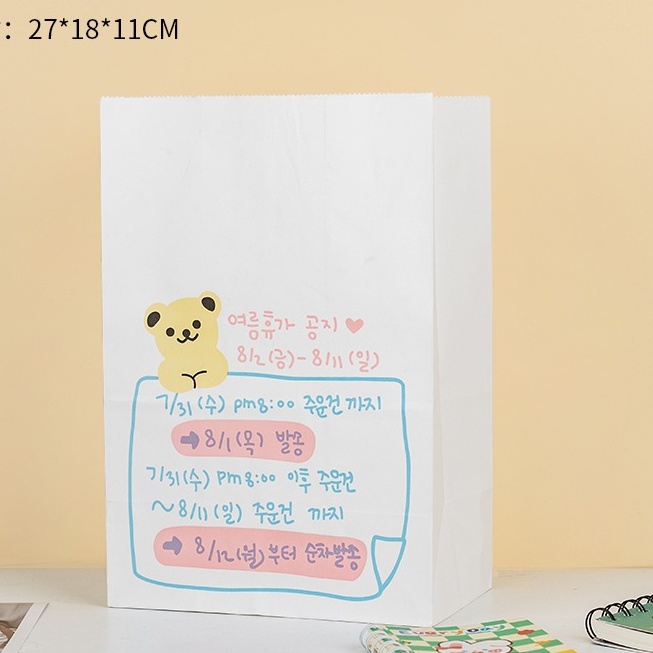 : 27*18*11CM
여름휴가 공지
8/2(금)-8/11(일)
7/31(수) pm8:00 주문건까지
8/1(목) 발송
7/31(수) pm8:00 이후 주문건
~8/11(일) 주문건 까지
8/12(월)부터 순차발송
Every Day